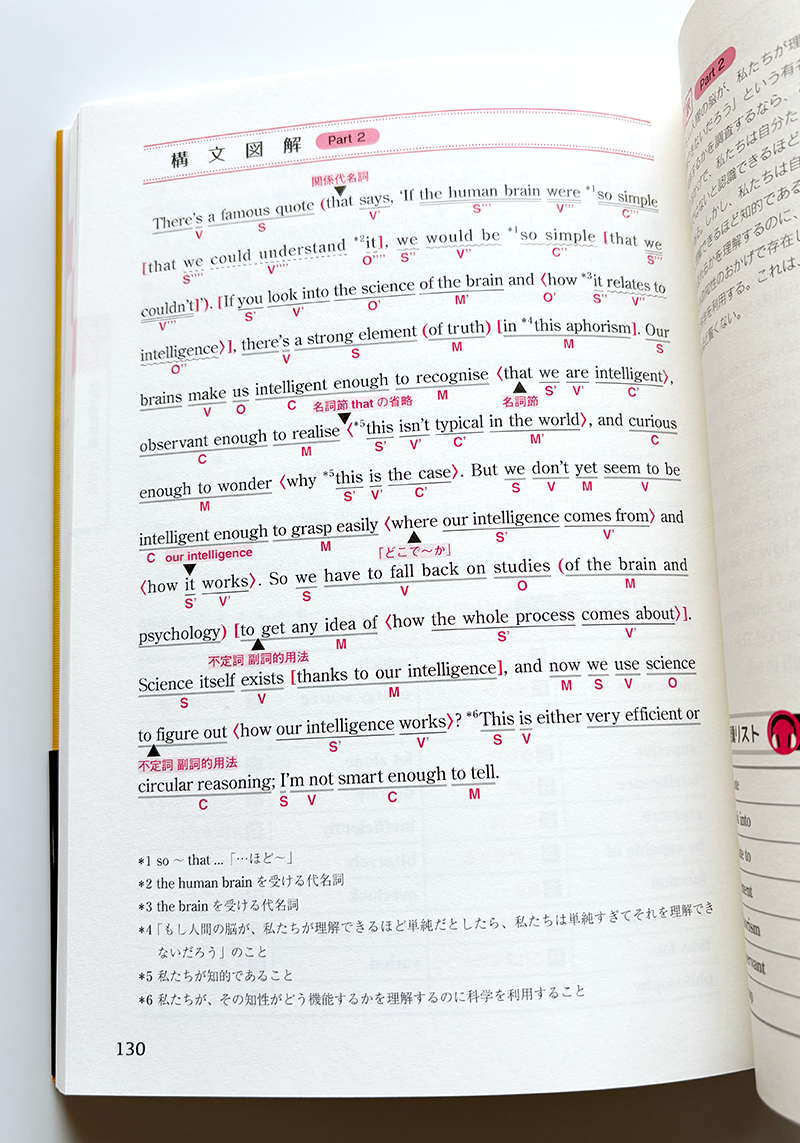 構文図解 Part 2
関係代名詞
There's a famous quote (that says, 'If the human brain were *1so simple
V S V' S''' V''' C'''
[that we could understand *2it], we would be *1so simple [that we
S'''' V'''' O'''' S'' V'' C'' S'''
couldn't]'). [If you look into the science of the brain and 〈how *3it relates to
V''' S' V' O' M' O' S'' V''
intelligence〉], there's a strong element (of truth) [in *4this aphorism]. Our
O'' V S M M S
brains make us intelligent enough to recognise 〈that we are intelligent〉,
V O C M S' V' C'
名詞節 that の省略
名詞節
observant enough to realise 〈*5this isn't typical in the world〉, and curious
C M S' V' C' M' C
enough to wonder 〈why *5this is the case〉. But we don't yet seem to be
M S' V' C' S V M V
intelligent enough to grasp easily 〈where our intelligence comes from〉 and
C M S' V'
our intelligence
「どこで～か」
〈how it works〉. So we have to fall back on studies (of the brain and
S' V' S V O M
psychology) [to get any idea of 〈how the whole process comes about〉].
M S' V'
不定詞 副詞的用法
Science itself exists [thanks to our intelligence], and now we use science
S V M M S V O
to figure out 〈how our intelligence works〉? *6This is either very efficient or
S' V' S V
不定詞 副詞的用法
circular reasoning; I'm not smart enough to tell.
C S V C M
*1 so ～ that ...「…ほど～」
*2 the human brain を受ける代名詞
*3 the brain を受ける代名詞
*4「もし人間の脳が、私たちが理解できるほど単純だとしたら、私たちは単純すぎてそれを理解でき
ないだろう」のこと
*5 私たちが知的であること
*6 私たちが、その知性がどう機能するかを理解するのに科学を利用すること
130
Part 2
リスト
into
to